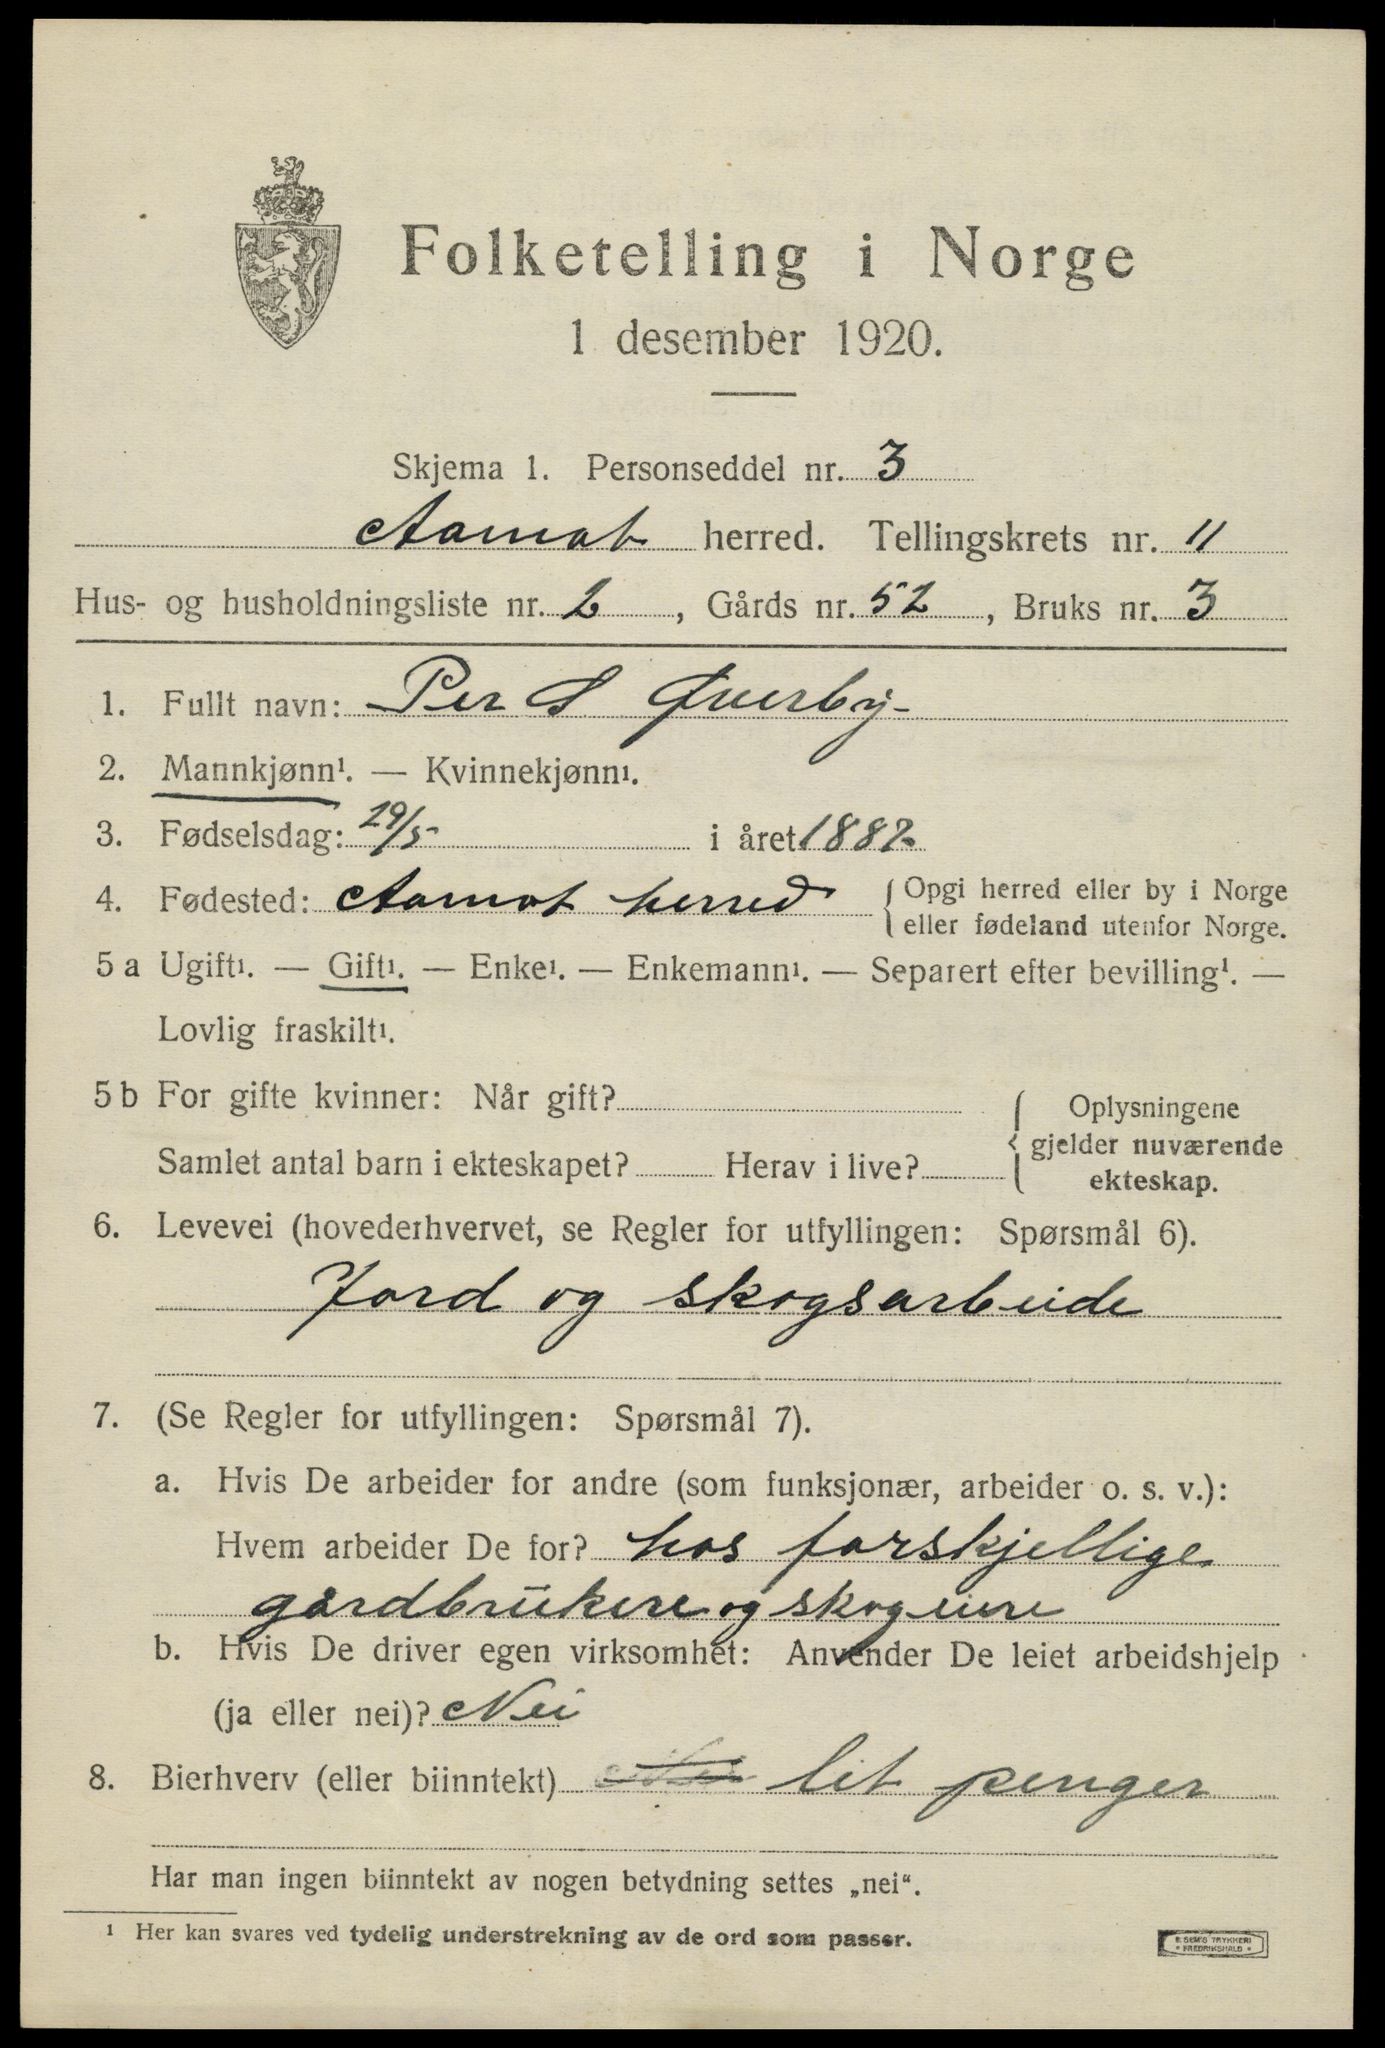 Folketelling i Norge
1 desember 1920.
Skjema 1. Personseddel nr. 3
Aamot herred. Tellingskrets nr. 11
Hus- og husholdningsliste nr. 2, Gårds nr. 52, Bruks nr. 3
1. Fullt navn: Per S Øverby
2. Mannkjønn¹. — Kvinnekjønn¹.
3. Fødselsdag: 29/5 i året 1882
4. Fødested: Aamot herred { Opgi herred eller by i Norge
eller fødeland utenfor Norge.
5 a Ugift¹. — Gift¹. — Enke¹. — Enkemann¹. — Separert efter bevilling¹. —
Lovlig fraskilt¹.
5 b For gifte kvinner: Når gift? { Oplysningene
gjelder nuværende
Samlet antal barn i ekteskapet? Herav i live? ekteskap.
6. Levevei (hovederhvervet, se Regler for utfyllingen: Spørsmål 6).
Jord og skogsarbeide
7. (Se Regler for utfyllingen: Spørsmål 7).
a. Hvis De arbeider for andre (som funksjonær, arbeider o. s. v.):
Hvem arbeider De for? hos forskjellige
gårdbrukere og skogeiere
b. Hvis De driver egen virksomhet: Anvender De leiet arbeidshjelp
(ja eller nei)? Nei
8. Bierhverv (eller biinntekt) lit penger
Har man ingen biinntekt av nogen betydning settes „nei“.
¹ Her kan svares ved tydelig understrekning av de ord som passer.
E. SEM'S TRYKKERI
* FREDRIKSHALD *